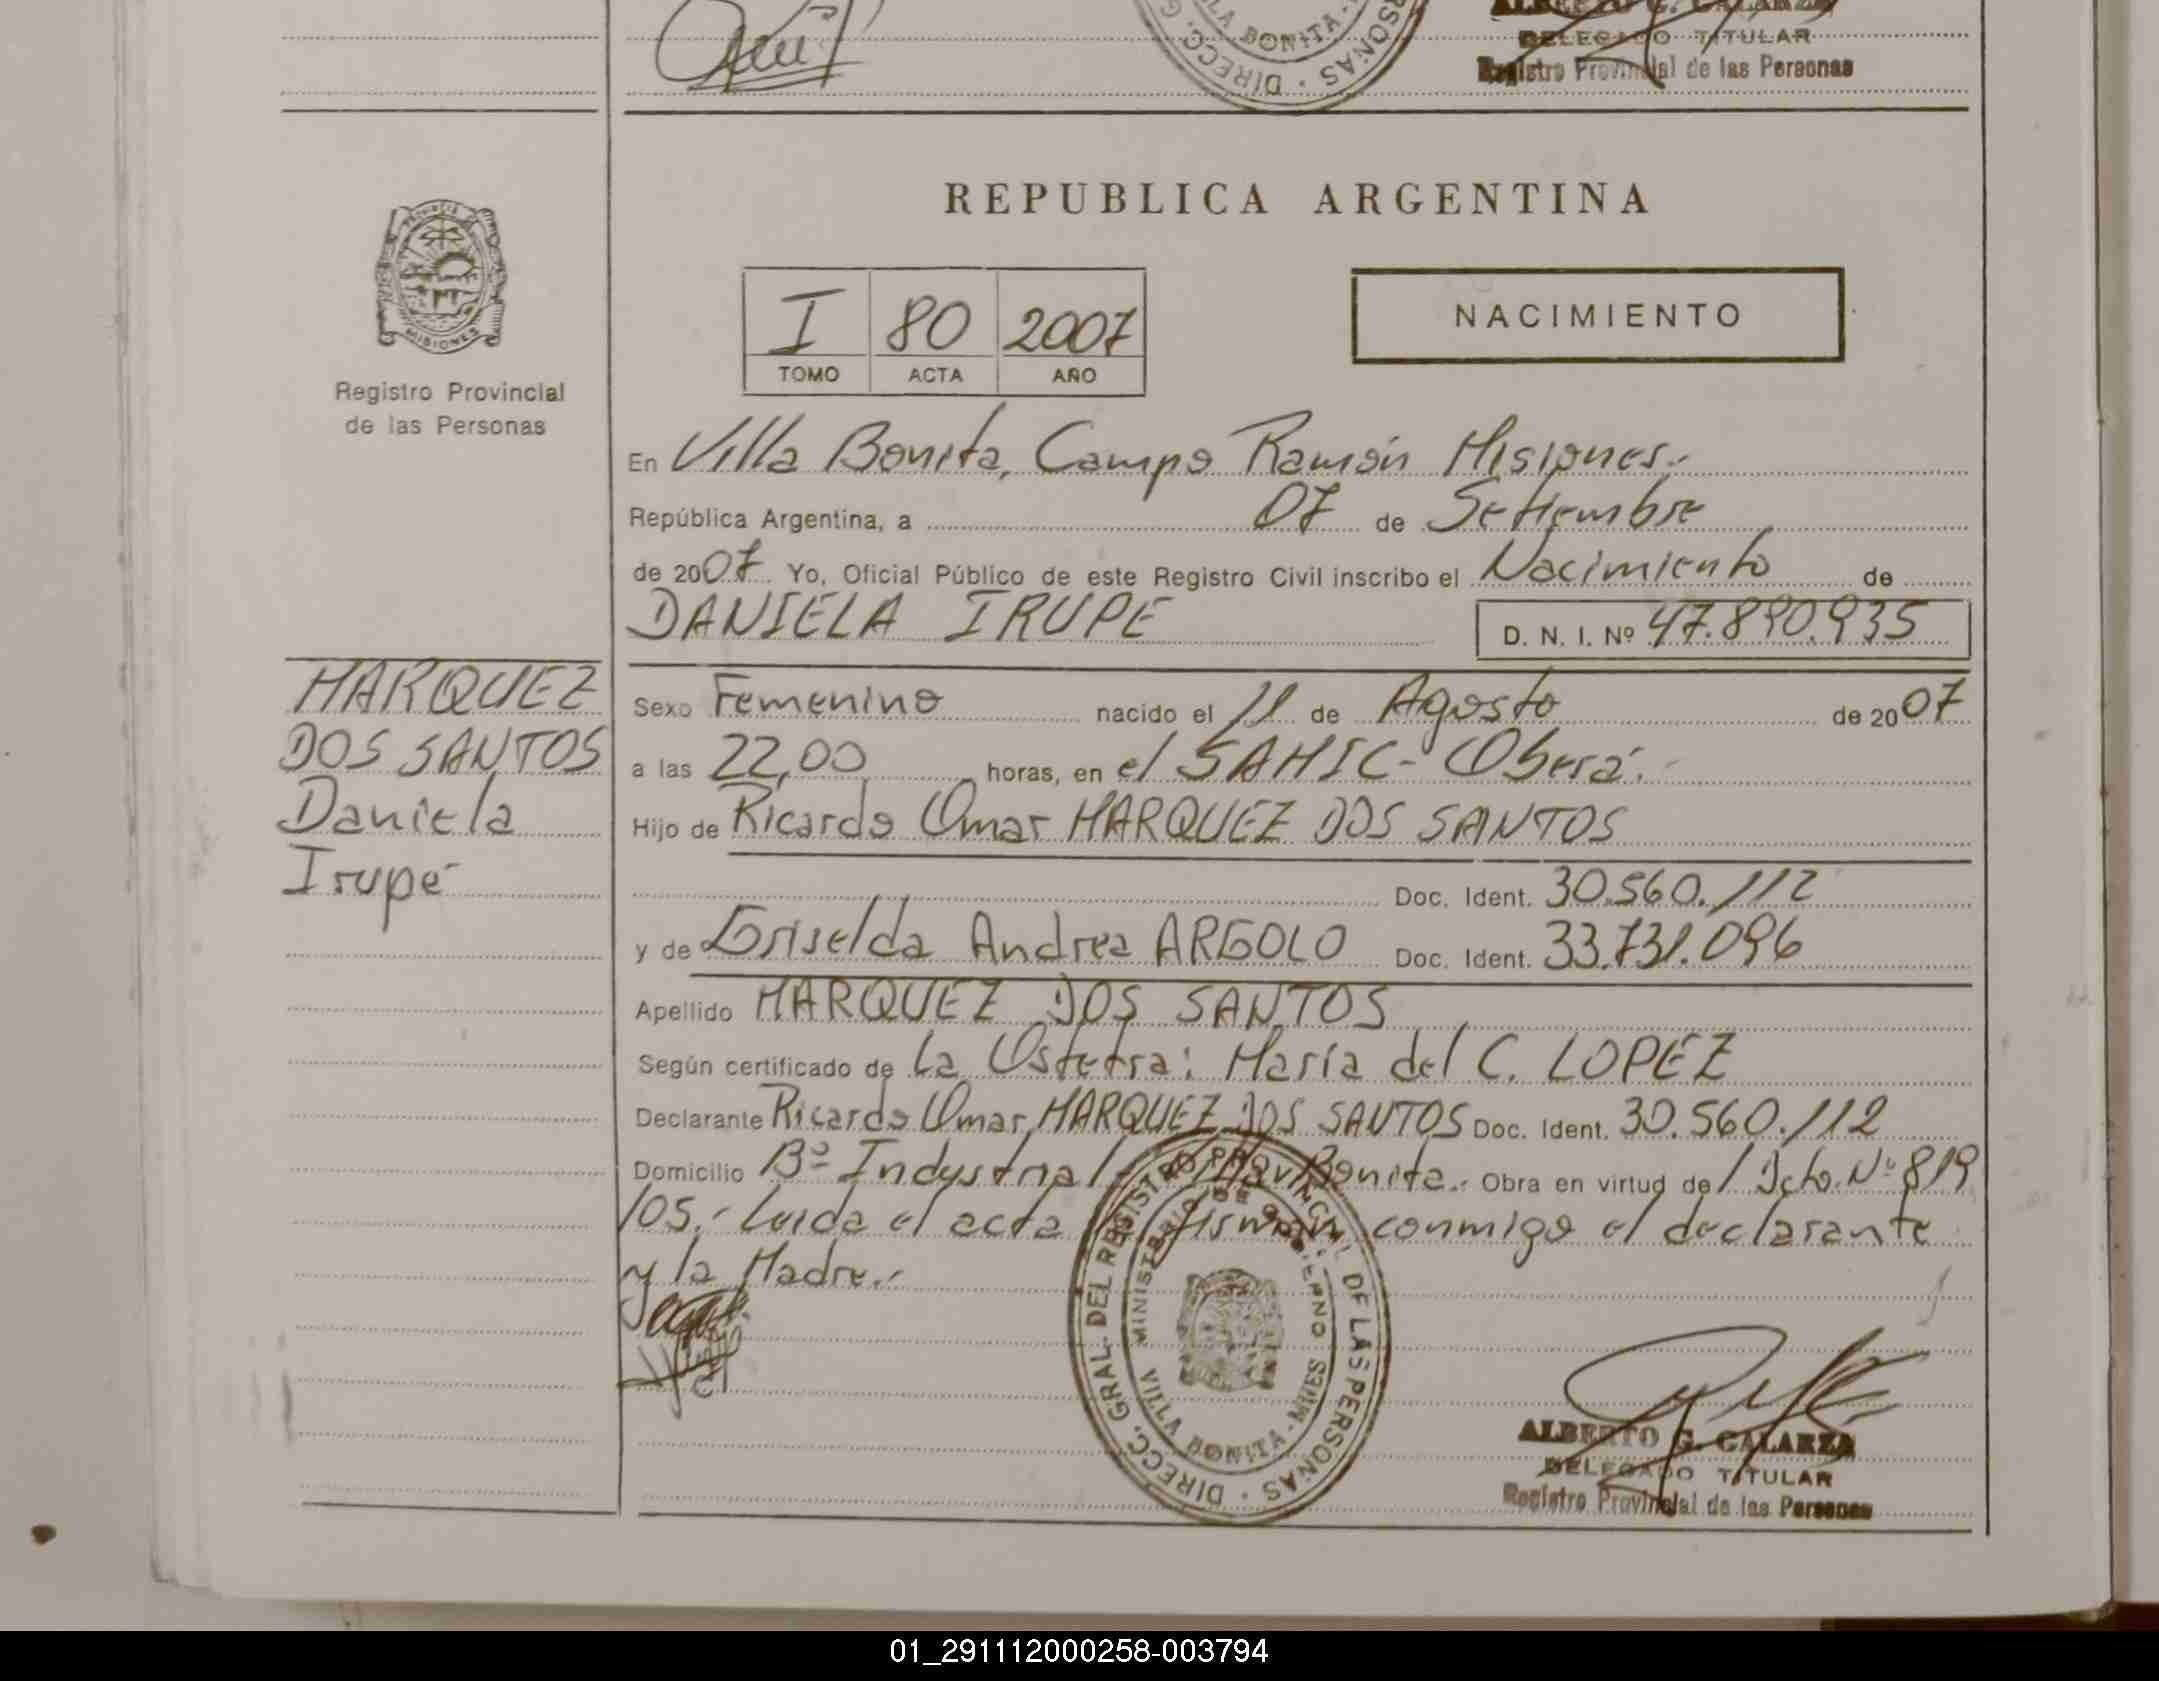 LLA BONITA
DIRECC. G
RSONAS
ALBERTO G. CALARZA
DELEGADO TITULAR
Registro Provincial de las Personas
MISIONES
Registro Provincial
de las Personas
REPUBLICA ARGENTINA
I 80 2007
TOMO ACTA AÑO
NACIMIENTO
En Villa Bonita, Campo Ramón Misiones.-
República Argentina, a 07 de Setiembre
de 2007. Yo, Oficial Público de este Registro Civil inscribo el Nacimiento de
DANIELA IRUPE D. N. I. Nº 47.890.935
MARQUEZ
DOS SANTOS
Daniela
Irupé
Sexo Femenino nacido el 11 de Agosto de 2007
a las 22,00 horas, en el SAMIC- Oberá.-
Hijo de Ricardo Omar MARQUEZ DOS SANTOS
Doc. Ident. 30.560.112
y de Griselda Andrea ARGOLO Doc. Ident. 33.731.096
Apellido MARQUEZ DOS SANTOS
Según certificado de la Ostetra: María del C. LOPEZ
Declarante Ricardo Omar MARQUEZ DOS SANTOS Doc. Ident. 30.560.112
Domicilio Bº Industrial Bonita.- Obra en virtud de l Dcto. Nº 819
/05.- Leida el acta firman conmigo el declarante
y la Madre.-
DIRECC. GRAL. DEL REGISTRO PROVINCIAL DE LAS PERSONAS
MINISTERIO DE GOBIERNO
VILLA BONITA - MNES
ALBERTO G. CALARZA
DELEGADO TITULAR
Registro Provincial de las Personas
01_291112000258-003794